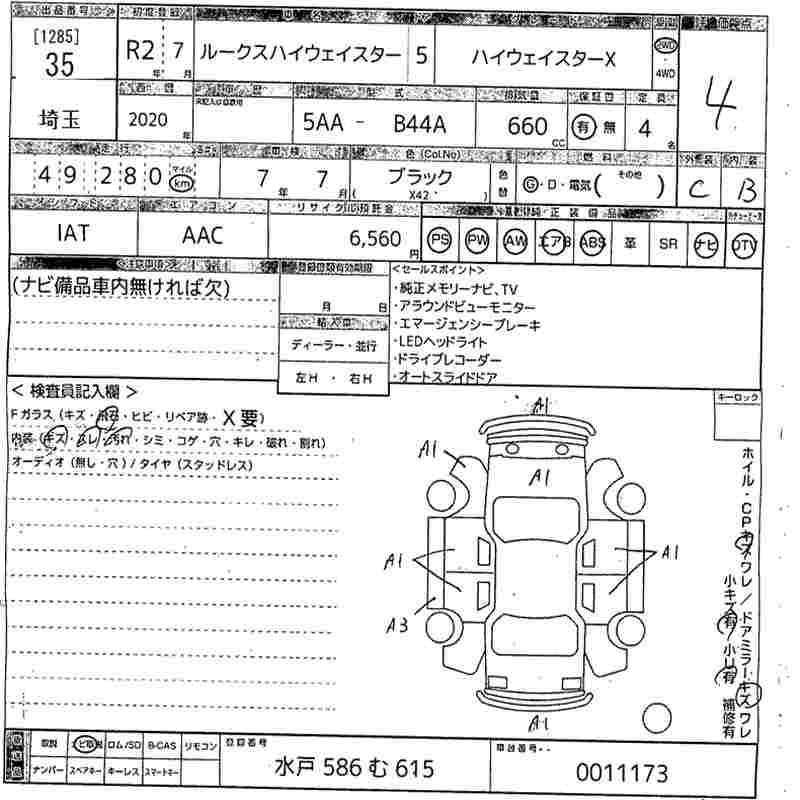 出品番号 初度登録 車名 グレード 駆動 評価点
[1285]
35
R2年 7月 ルークスハイウェイスター 5 ハイウェイスターX 2WD・4WD
4
埼玉
西暦 車歴 型式 排気量 保証書 定員
2020年 5AA - B44A 660cc 有 無 4名
走行 車検 色(Col.No) 燃料 外装 内装
49,280 マイル km 7年 7月 ブラック 色替 G・D・電気( その他 ) C B
(X42・ )
シフト エアコン リサイクル預託金 純正装備品
IAT AAC 6,560円 PS PW AW エアB ABS 革 SR ナビ DTV
(ナビ備品車内無ければ欠)
登録書類有効期限
月 日
輸入車
ディーラー・並行
左H・右H
<セールスポイント>
・純正メモリーナビ、TV
・アラウンドビューモニター
・エマージェンシーブレーキ
・LEDヘッドライト
・ドライブレコーダー
・オートスライドドア
<検査員記入欄>
Fガラス(キズ・飛石・ヒビ・リペア跡・X要)
内装(キズ・ヨレ・汚れ・シミ・コゲ・穴・キレ・破れ・割れ)
オーディオ(無し・穴)/タイヤ(スタッドレス)
キーロック
A1
A1
A1
A1
A1
A3
A1
ホイル・CPキズワレ/ドアミラーキズワレ
小キズ有/小U有 補修有
取説 ナビ取説 ロム/SD B-CAS リモコン
ナンバー スペアキー キーレス スマートキー
登録番号
水戸 586 む 615
車台番号
0011173